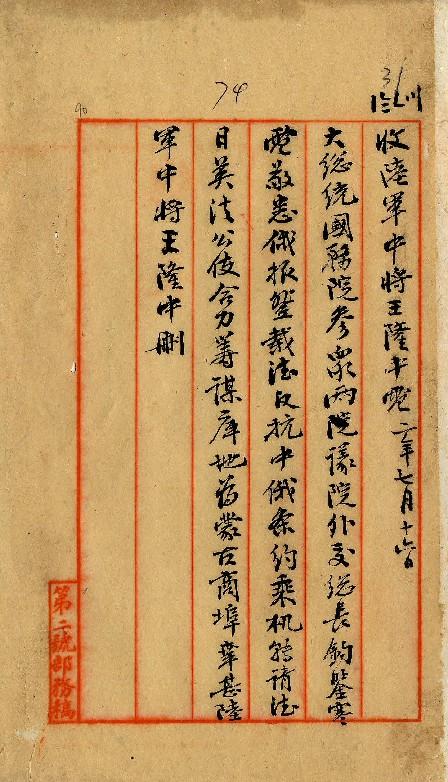 收陸軍中將王隆中電 二年七月十六日
大總統國務院參眾兩院議院外交總長鈞鑒寒
電敬悉俄報登載法反抗中俄條約乘机能請法
日英法公使合力籌謀庫地为蒙古商埠幸甚陸
軍中將王隆中刪
第二號部務稿
74
31
90